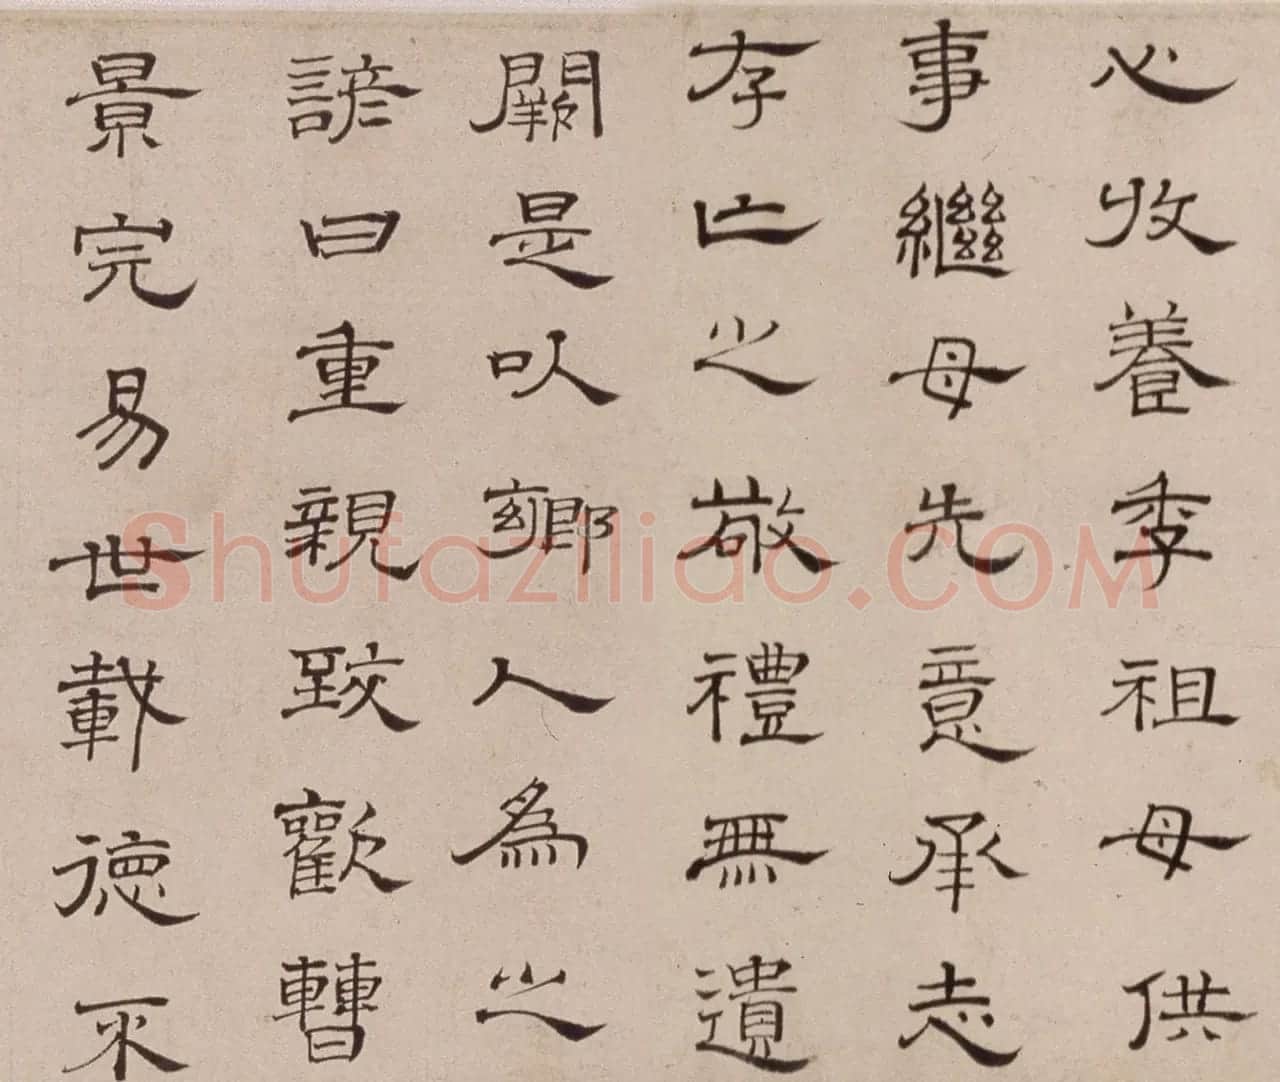 心收養季祖母供
事繼母先意承志
存亡之敬禮無遺
闕是以鄉人為之
諺曰重親致歡曹
景完易世載德不
Shufaziliao.COM